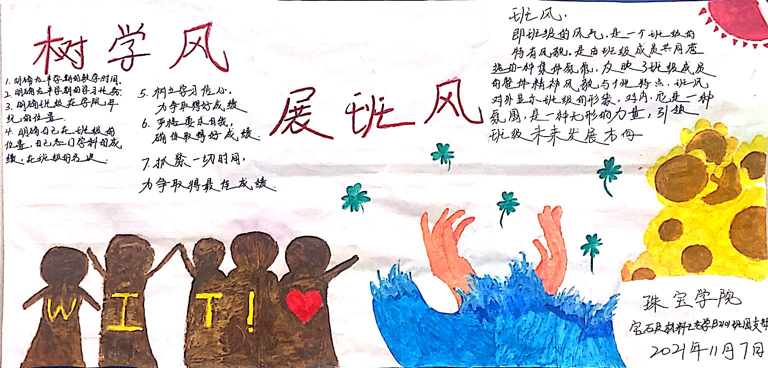 树学风
1.明确本学期的教学时间.
2.明确本学期的学习任务.
3.明确班级在学院年
级的位置.
4.明确自己在班级的
位置,自己各门学科的成
绩,在班级的名次
5.树立学习信心,
力争取得好成绩
6.严格要求自我,
确保取得好成绩.
7.抓紧一切时间,
力争取得最佳成绩.
展班风
班风.
即班级的风气,是一个班级的
特有风貌,是由班级成员共同营
造的一种集体氛围,反映了班级成员
的整体精神风貌与个性特点.班风
对外显示班级的形象,对内,它是一种
氛围,是一种无形的力量,引投
班级未来发展方向
WIT!
珠宝学院
宝石及材料工艺学
2021年11月7日